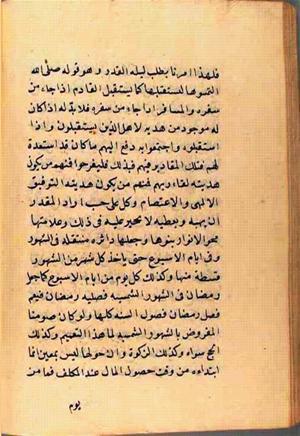 فلهذا امرنا بطلب ليلة القدر وهو قوله صلى الله
التمسوها لنستقبلها كما يستقبل القادم اذا جاء من
سفره والمسافر اذا جاء من سفره فلا بد له اذا كان
له موجود من هدية لاهله الذين يستقبلونه فاذا
استقبلوه واجتمعوا به دفع اليهم ما كان قد استعده
لهم فتلك المقادير فيهم فبذلك فليفرحوا فمنهم من يكون
هديته لقاء ربهم ومنهم من يكون هديته التوفيق
الالهي والاعتصام وكل على حسب ما اراد المقدر
ان يهبه ويعطيه لا تحجير عليه في ذلك وعلامتها
محو الانوار بنورها وجعلها دائرة متنقلة في الشهور
وفي ايام الاسبوع حتى ياخذ كل شهر من الشهور
قسطه منها وكذلك كل يوم من ايام الاسبوع كما جعل
رمضان في الشهور الشمسية فصليه رمضان فيعم
فصل رمضان فصول السنة كلها ولو كان صومنا
المفروض بالشهور الشمسية لما هذا التعميم وكذلك
الحج سواء وكذلك الزكوة وان حولها ليس بمعين فا
ابتداءه من وقت حصول المال عند المكلف فما من
يوم